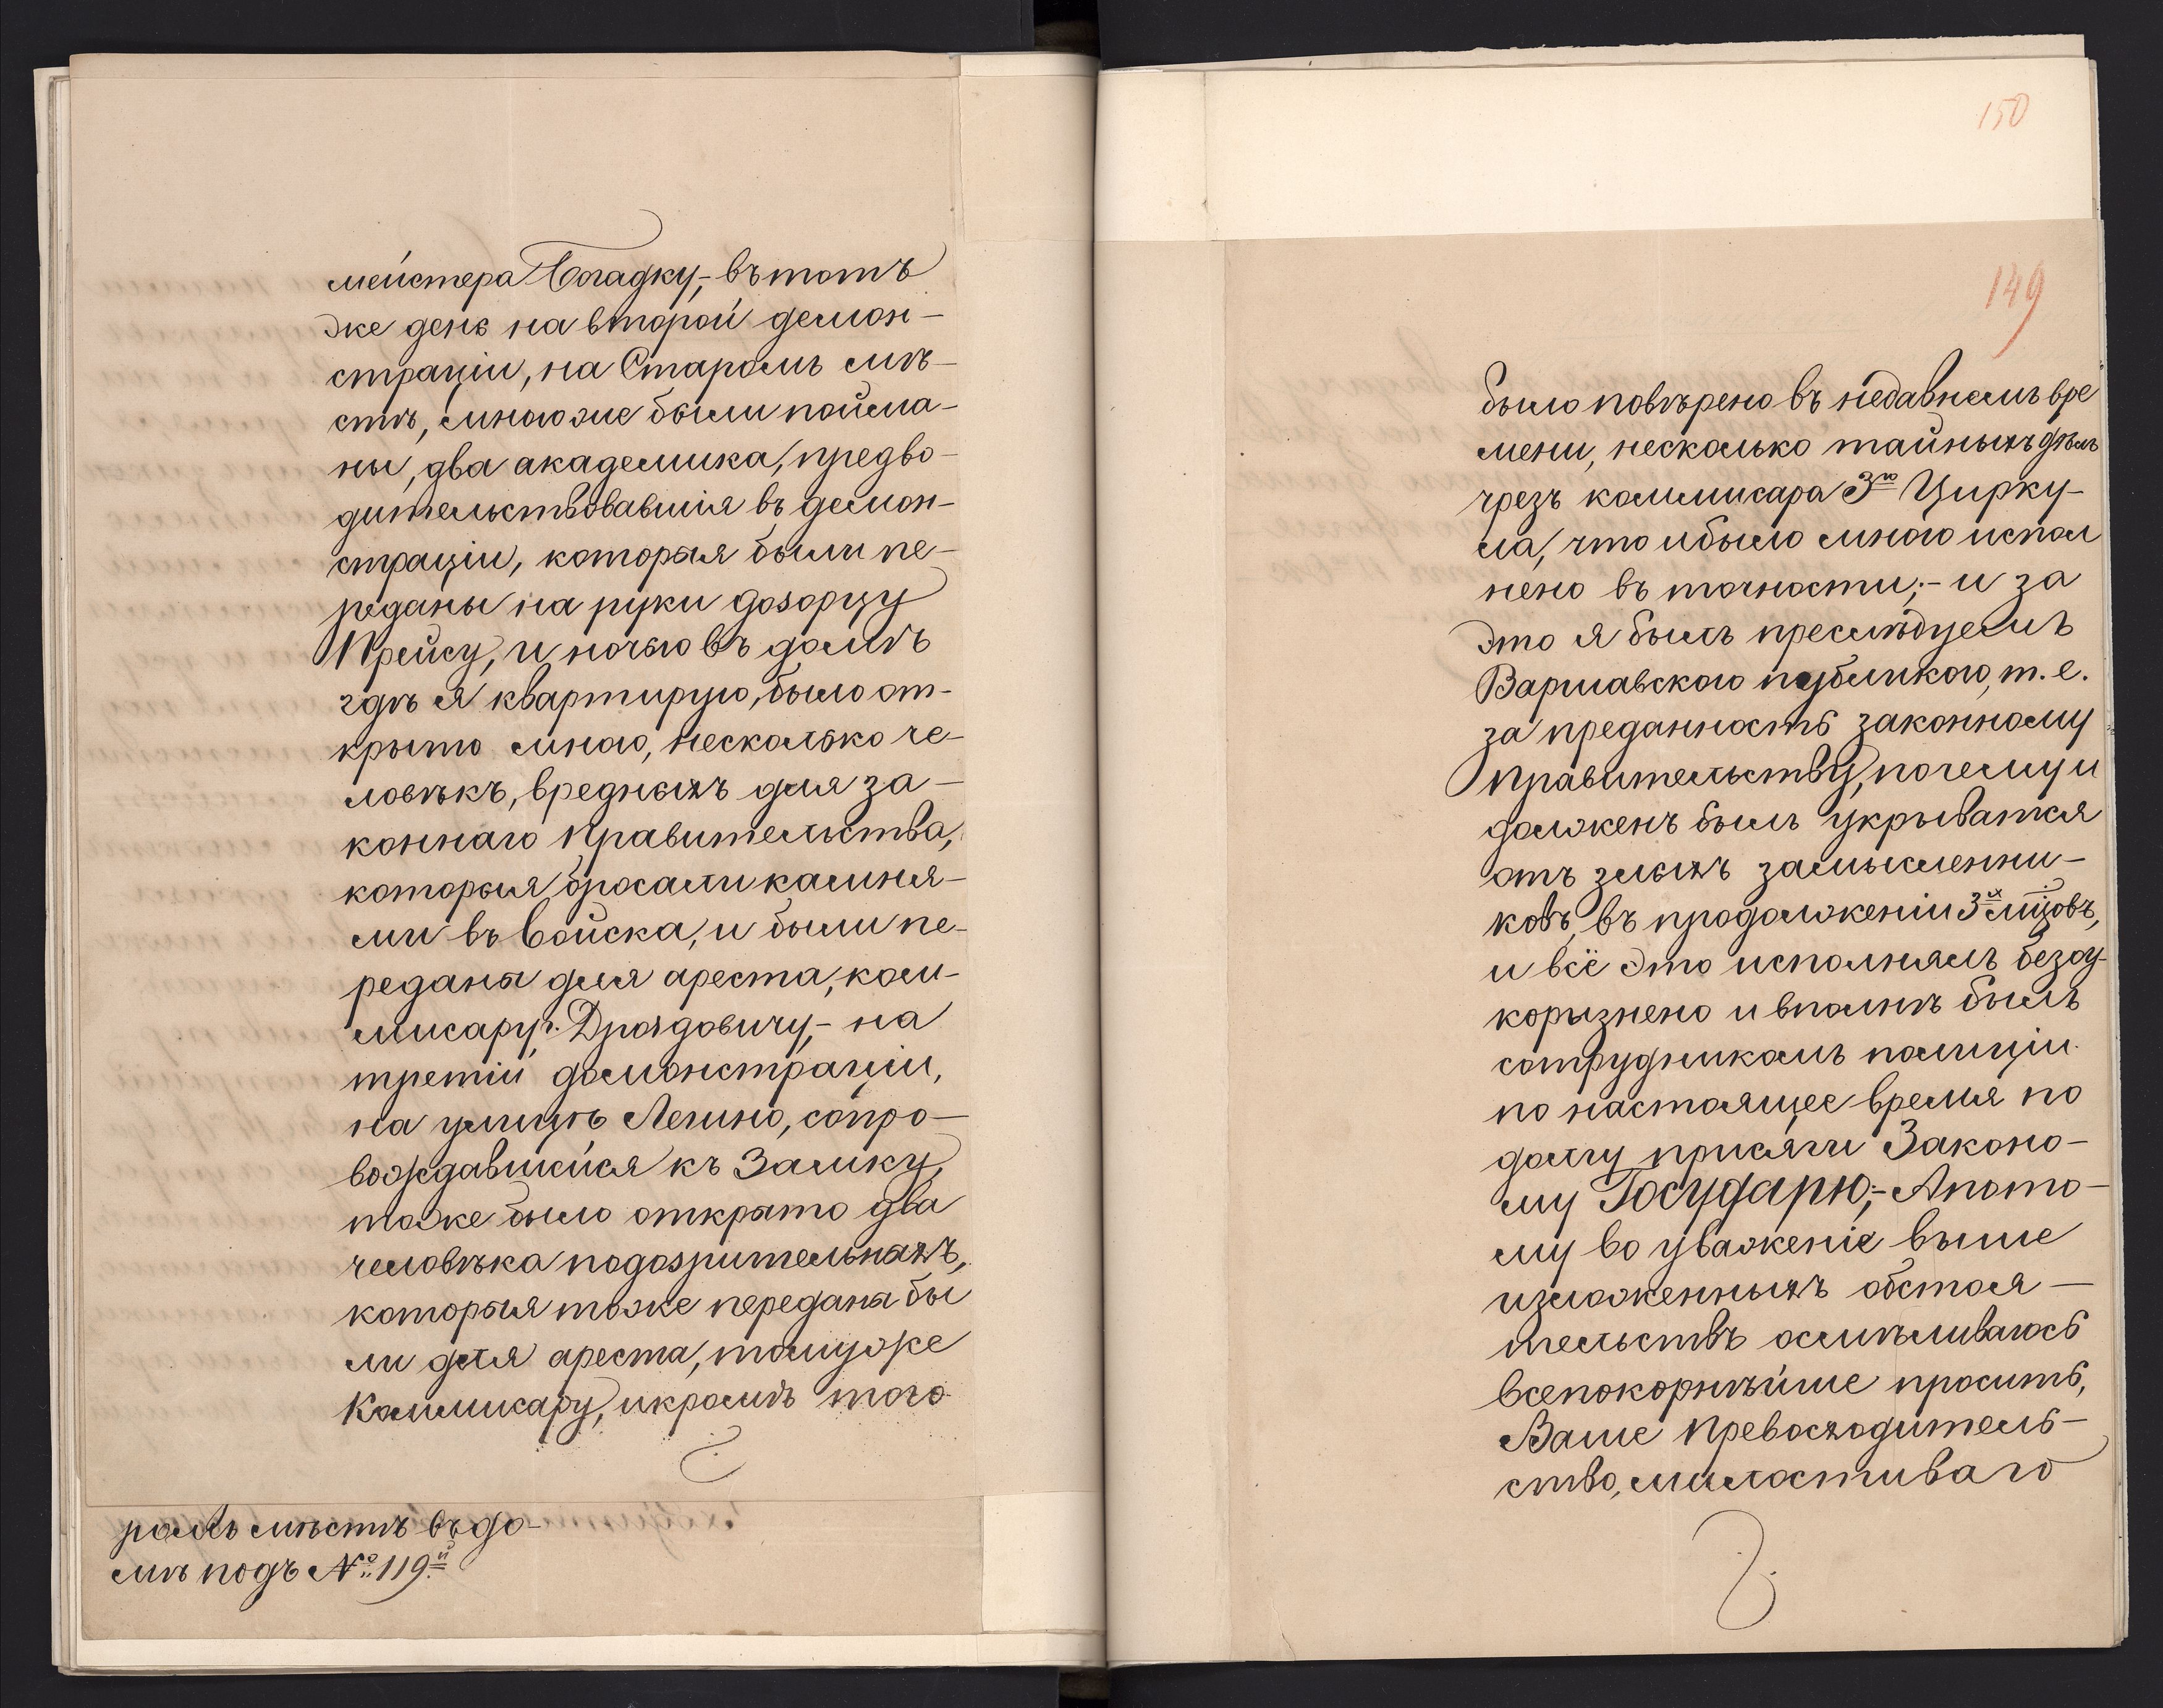 мейстера Богадку,- въ тотъ
же день на второй демон-
страціи, на Старомъ мѣ-
стѣ, мною же были пойма-
ны, два академика, предво-
дительствовавшія въ демон-
страціи, которыя были пе-
реданы на руки дозорцу
Прейсу, и ночью въ домѣ
гдѣ я квартирую, было от-
крыто мною, несколько че-
ловѣкъ, вредныхъ для за-
коннаго Правительства,
которыя бросали камня-
ми въ войска, и были пе-
реданы для ареста, ком-
мисару г. Дроздовичу,- на
третій домонстраціи,
на улицѣ Лешно, сопро-
вождавшейся къ Замку,
тоже было открыто два
человѣка подозрительныхъ,
которыя тоже переданы бы
ли для ареста, томуже
Коммисару, и кромѣ того
ромъ мѣстѣ въ до-
мѣ подъ № 119й
150
149
было повѣрено въ недавнемъ вре
мени, несколько тайныхъ дѣлъ
чрезъ коммисара 3го Цирку-
ла, что и было мною испол
нено въ точности;- и за
это я былъ преслѣдуемъ
Варшавскою публикою, т. е.
за преданность законному
Правительству, почему и
долженъ былъ укрыватся
отъ злыхъ замысленни-
ковъ, въ продолженіи 3хъ мцовъ,
и всё это исполнялъ безоу-
коризнено и вполнѣ былъ
сотрудникомъ полиціи
по настоящее время по
долгу присяги Законо-
му Государю;- А пото-
му во уваженіе выше
изложенныхъ обстоя-
тельствъ осмѣливаюсь
всепокорнѣйше просить,
Ваше Превосходитель-
ство, милостиваго